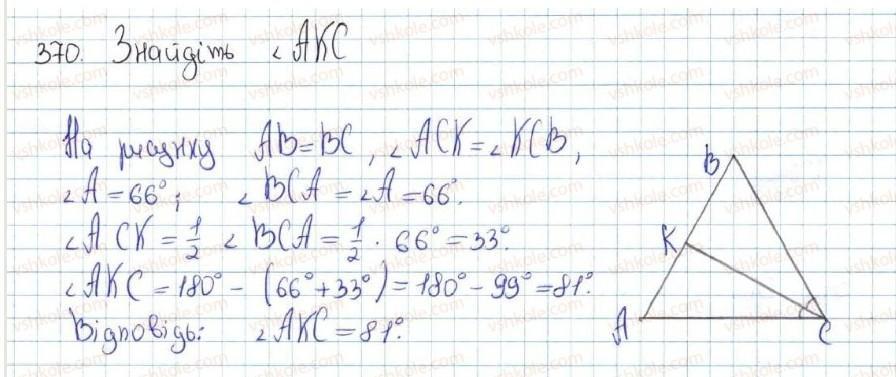 370. Знайдіть ∠AKC
На рисунку AB=BC, ∠ACK=∠KCB,
∠A=66°; ∠BCA=∠A=66°.
∠ACK=1/2 ∠BCA=1/2·66°=33°.
∠AKC=180°-(66°+33°)=180°-99°=81°.
Відповідь: ∠AKC=81°.
B
K
A
C
vshkole.com